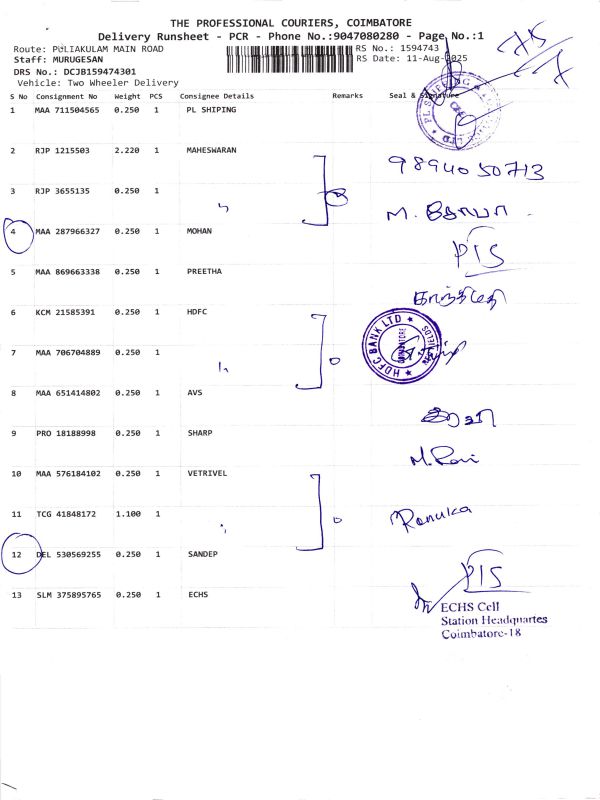 THE PROFESSIONAL COURIERS, COIMBATORE
Delivery Runsheet - PCR - Phone No.:9047080280 - Page No.:1
Route: PULIAKULAM MAIN ROAD
RS No.: 1594743
Staff: MURUGESAN
RS Date: 11-Aug-2025
DRS No.: DCJB159474301
Vehicle: Two Wheeler Delivery
S No Consignment No Weight PCS Consignee Details Remarks Seal & Signature
1 MAA 711504565 0.250 1 PL SHIPING
2 RJP 1215503 2.220 1 MAHESWARAN
9894050713
3 RJP 3655135 0.250 1
4 MAA 287966327 0.250 1 MOHAN
PTS
5 MAA 869663338 0.250 1 PREETHA
6 KCM 21585391 0.250 1 HDFC
HDFC BANK LTD
COIMBATORE
7 MAA 706704889 0.250 1
8 MAA 651414802 0.250 1 AVS
9 PRO 18188998 0.250 1 SHARP
M. Ravi
10 MAA 576184102 0.250 1 VETRIVEL
11 TCG 41848172 1.100 1
Renuka
12 DEL 530569255 0.250 1 SANDEP
PTS
13 SLM 375895765 0.250 1 ECHS
ECHS Cell
Station Headquartes
Coimbatore-18